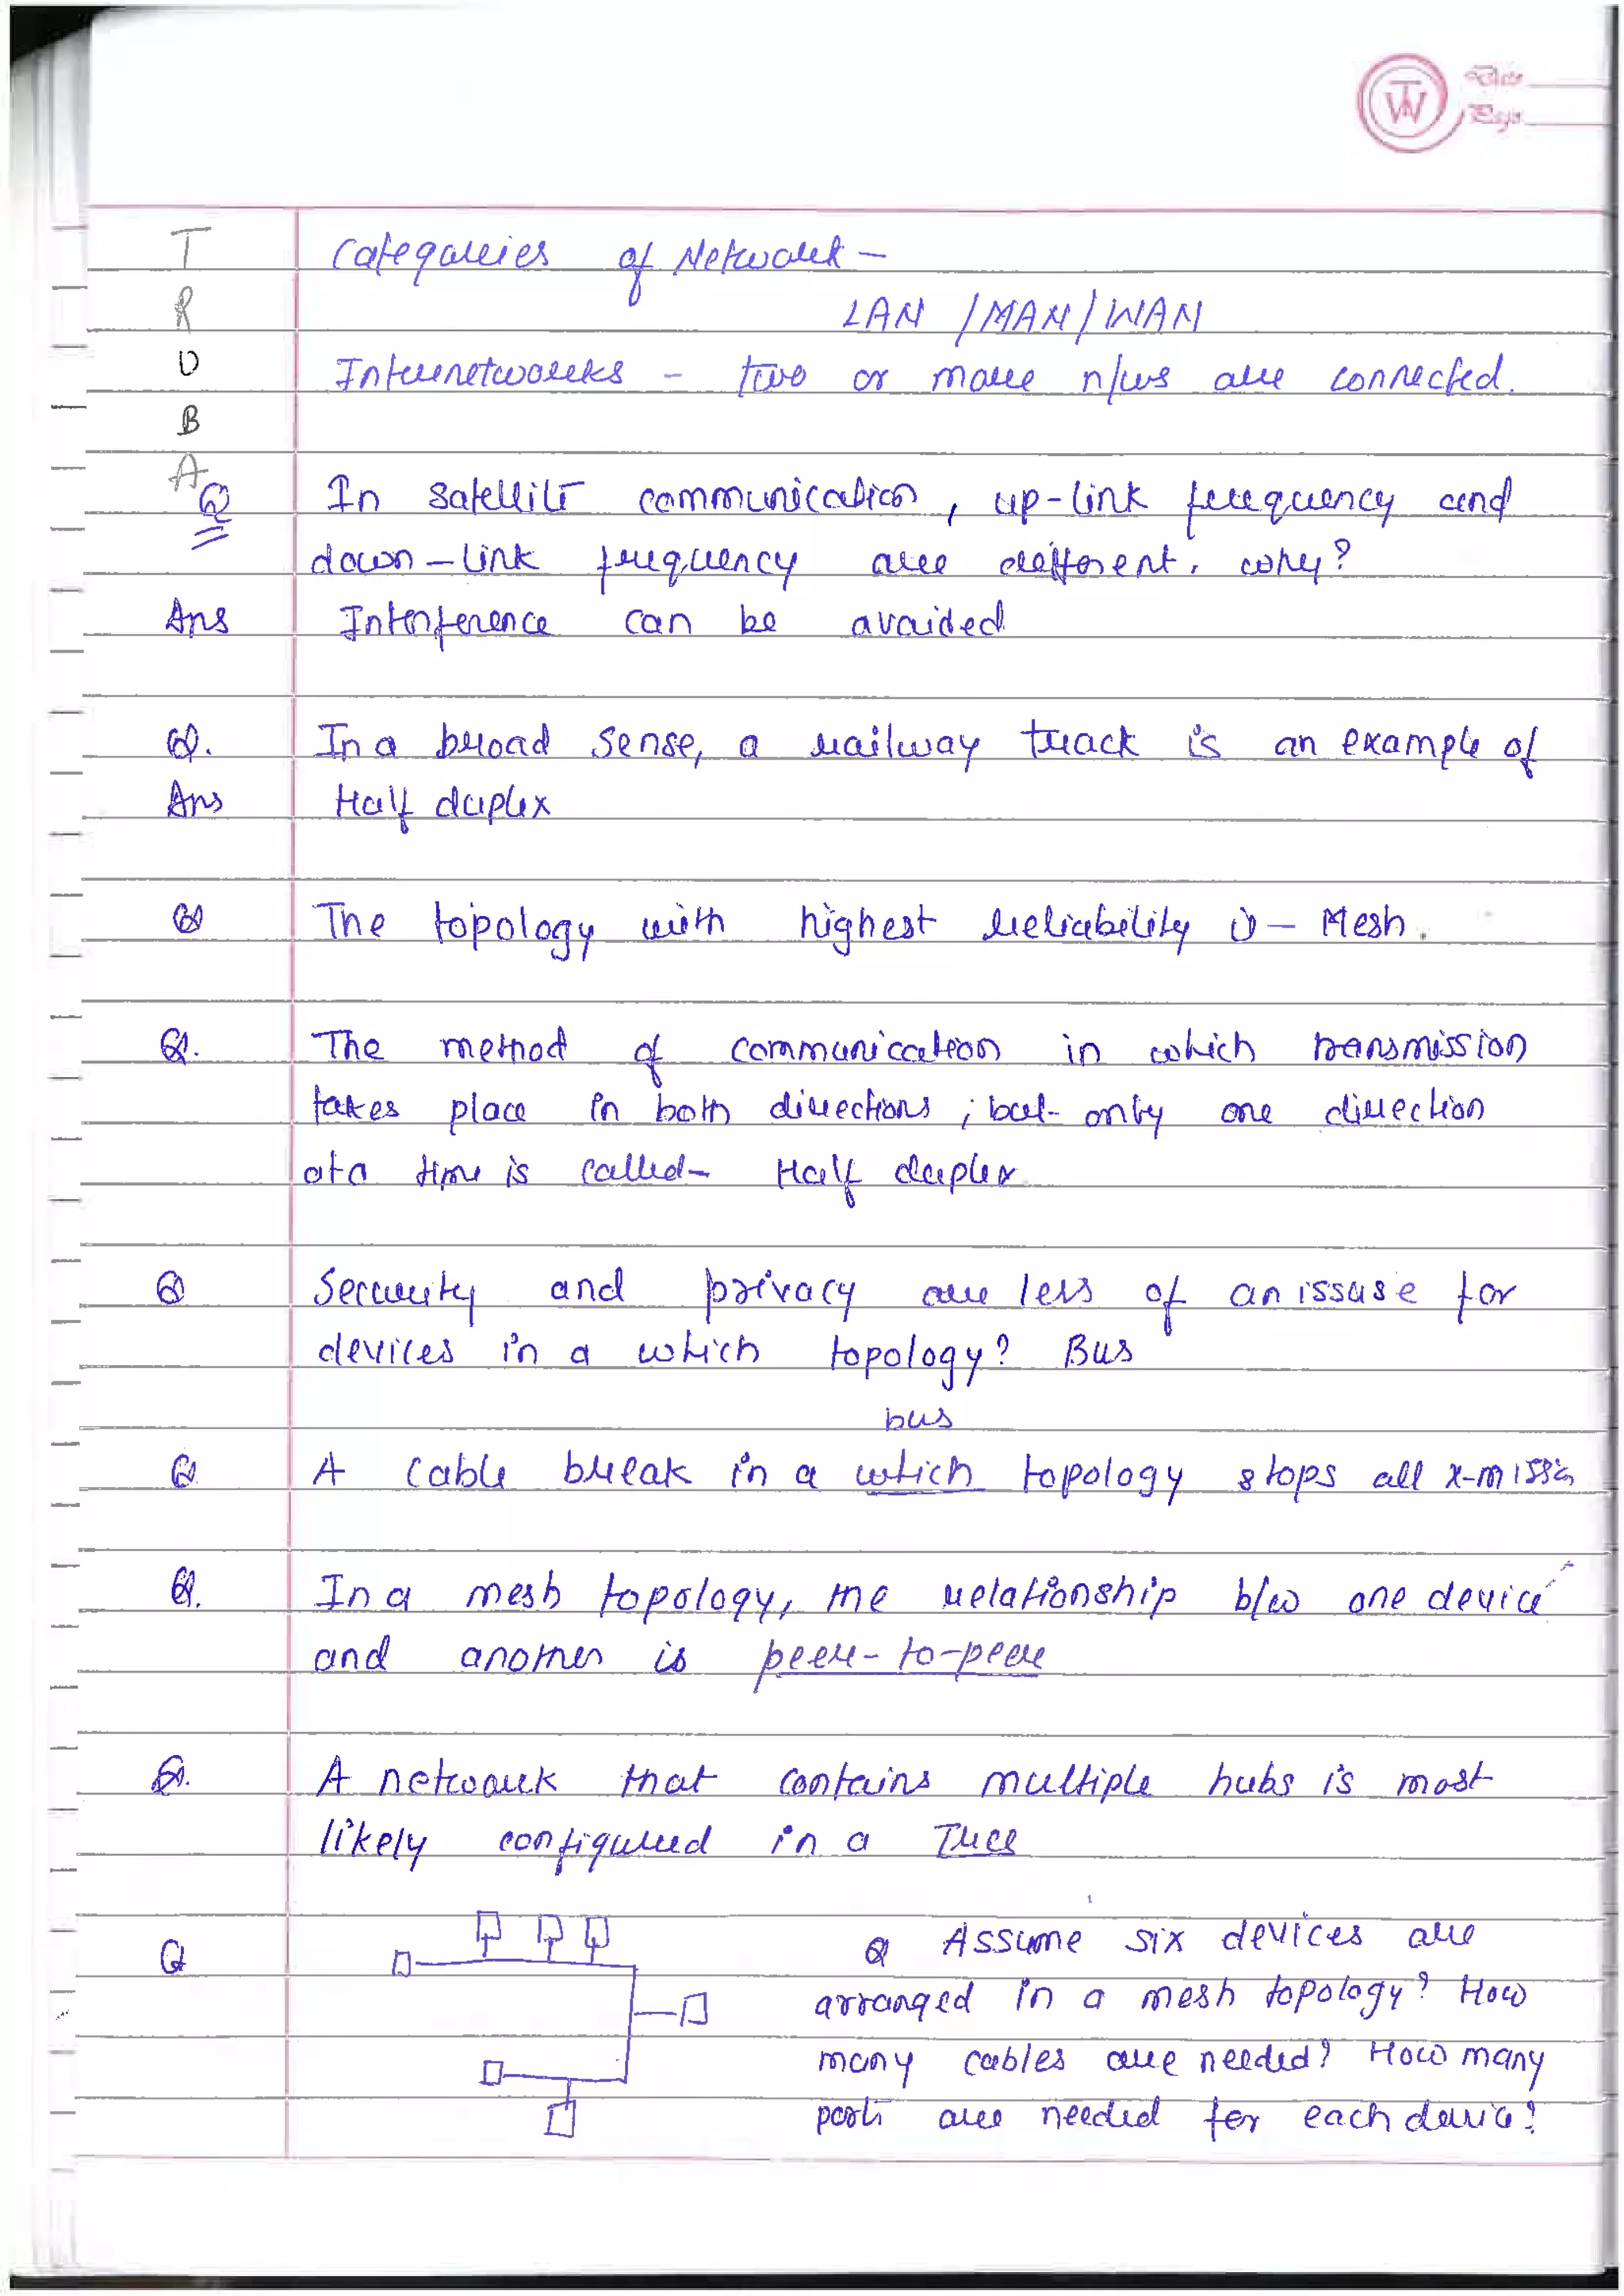 Date
Page
T
Categories of Network -
R
LAN / MAN / WAN
U
Internetworks - two or more n/ws are connected.
B
A
Q In satellite communication, up-link frequency and
down-link frequency are different. why?
Ans Interference can be avoided
Q. In a broad sense, a railway track is an example of
Ans Half duplex
Q The topology with highest reliability is - Mesh.
Q. The method of communication in which transmission
takes place in both directions, but only one direction
at a time is called- Half duplex
Q Security and privacy are less of an issuse for
devices in a which topology? Bus
bus
Q A cable break in a which topology stops all x-missin
Q. In a mesh topology, the relationship b/w one device
and another is peer-to-peer
Q. A network that contains multiple hubs is most
likely configured in a Tree
Q
Q Assume six devices are
arranged in a mesh topology? How
many cables are needed? How many
ports are needed for each device?